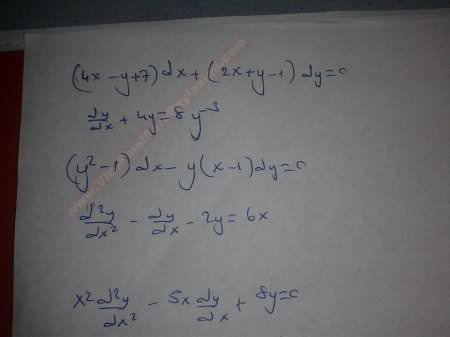 (4x-y+7)dx+(2x+y-1)dy=0
dy/dx + 4y = 8y^-3
(y²-1)dx - y(x-1)dy=0
d²y/dx² - dy/dx - 2y = 6x
x² d²y/dx² - 5x dy/dx + 8y=0